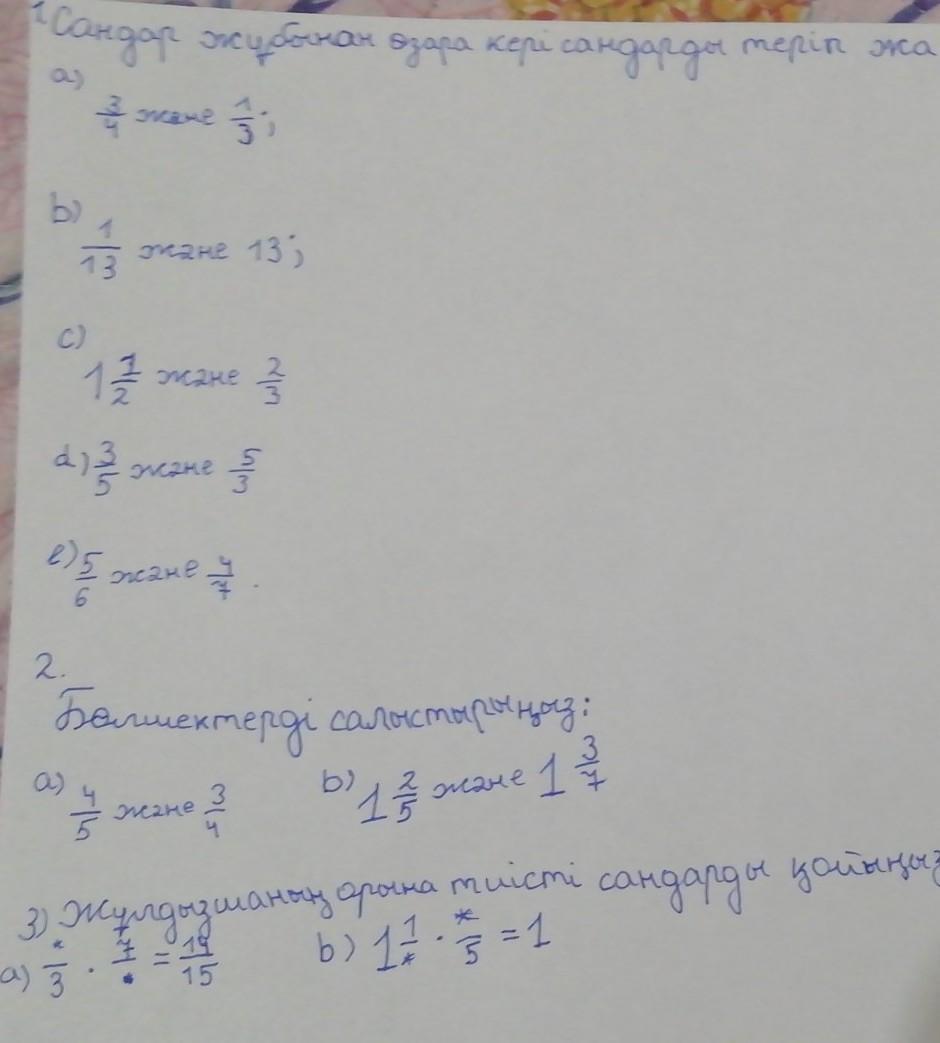 1 Сандар жұбынан өзара кері сандарды теріп жа
a)
3/4 және 1/3;
b)
1/13 және 13;
c)
1 1/2 және 2/3
d) 3/5 және 5/3
e) 5/6 және 4/7.
2.
Бөлшектерді салыстырыңыз:
a) 4/5 және 3/4 b) 1 2/5 және 1 3/7
3) Жұлдызшаның орына тиісті сандарды қойыңыз
a) */3 · 7/* = 14/15 b) 1 1/* · */5 = 1